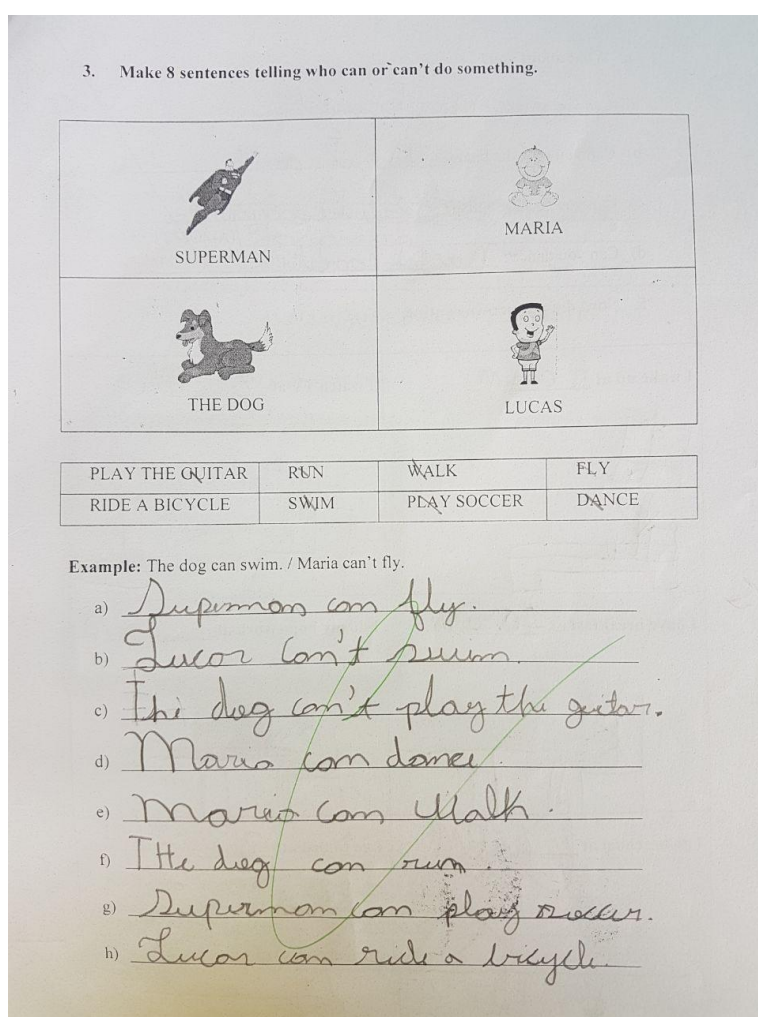 3. Make 8 sentences telling who can or can't do something.
SUPERMAN
MARIA
THE DOG
LUCAS
PLAY THE GUITAR RUN WALK FLY
RIDE A BICYCLE SWIM PLAY SOCCER DANCE
Example: The dog can swim. / Maria can't fly.
a) Superman can fly.
b) Lucas can't swim.
c) The dog can't play the guitar.
d) Maria can dance.
e) Maria can walk.
f) THe dog can run.
g) Superman can play soccer.
h) Lucas can ride a bicycle.